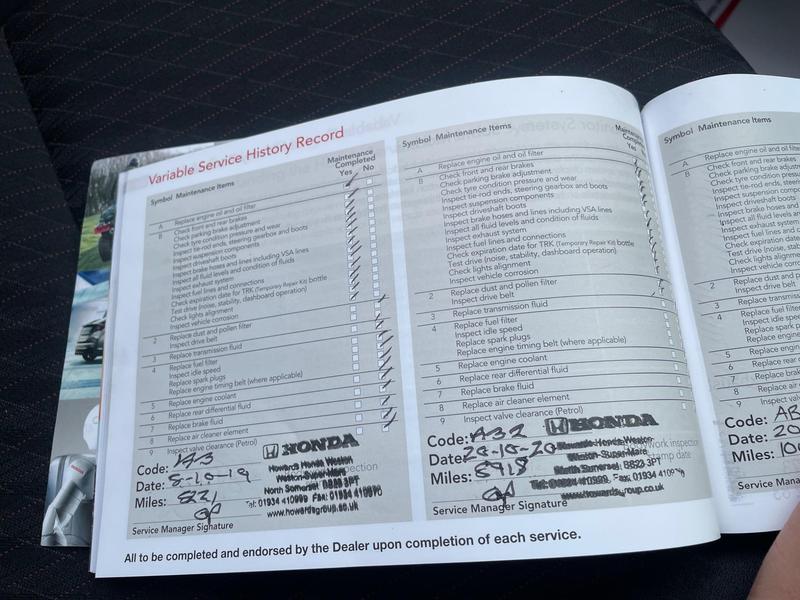 Variable Service History Record
Symbol Maintenance Items
Maintenance
Completed
Yes No
A Replace engine oil and oil filter
B Check front and rear brakes
Check parking brake adjustment
Check tyre condition pressure and wear
Inspect tie-rod ends, steering gearbox and boots
Inspect suspension components
Inspect driveshaft boots
Inspect brake hoses and lines including VSA lines
Inspect all fluid levels and condition of fluids
Inspect exhaust system
Inspect fuel lines and connections
Check expiration date for TRK (Temporary Repair Kit) bottle
Test drive (noise, stability, dashboard operation)
Check lights alignment
Inspect vehicle corrosion
2 Replace dust and pollen filter
Inspect drive belt
3 Replace transmission fluid
4 Replace fuel filter
Inspect idle speed
Replace spark plugs
Replace engine timing belt (where applicable)
5 Replace engine coolant
6 Replace rear differential fluid
7 Replace brake fluid
8 Replace air cleaner element
9 Inspect valve clearance (Petrol)
Code: A3
Date: 8-10-19
Miles: 8221
HONDA
Howards Honda Weston
Weston-Super-Mare
North Somerset BS23 3PT
Tel: 01934 410999 Fax: 01934 410970
www.howardsgroup.co.uk
Service Manager Signature
Symbol Maintenance Items
Yes
A Replace engine oil and oil filter
B Check front and rear brakes
Check parking brake adjustment
Check tyre condition pressure and wear
Inspect tie-rod ends, steering gearbox and boots
Inspect suspension components
Inspect driveshaft boots
Inspect brake hoses and lines including VSA lines
Inspect all fluid levels and condition of fluids
Inspect exhaust system
Inspect fuel lines and connections
Check expiration date for TRK (Temporary Repair Kit) bottle
Test drive (noise, stability, dashboard operation)
Check lights alignment
Inspect vehicle corrosion
2 Replace dust and pollen filter
Inspect drive belt
3 Replace transmission fluid
4 Replace fuel filter
Inspect idle speed
Replace spark plugs
Replace engine timing belt (where applicable)
5 Replace engine coolant
6 Replace rear differential fluid
7 Replace brake fluid
8 Replace air cleaner element
9 Inspect valve clearance (Petrol)
Code: A32
Date: 20-10-20
Miles: 8918
HONDA
Howards Honda Weston
Weston-Super-Mare
North Somerset BS23 3PT
www.howardsgroup.co.uk
Service Manager Signature
All to be completed and endorsed by the Dealer upon completion of each service.
Symbol Maintenance Items
A Replace engine oil and oil
B Check front and rear brakes
Check parking brake
Check tyre condition
Inspect tie-rod ends,
Inspect suspension
Inspect driveshaft boots
Inspect brake hoses and
Inspect all fluid levels
Inspect exhaust
Inspect fuel lines
Check expiration date
Test drive (noise,
Check lights
Inspect vehicle
2 Replace dust and
Inspect drive belt
3 Replace
4 Replace fuel
Inspect idle
Replace spark
Replace
5 Replace engin
6 Replace rear
7 Replace
8 Replace air
9 Inspect
Code: AB
Date: 20
Miles:
Service Mana